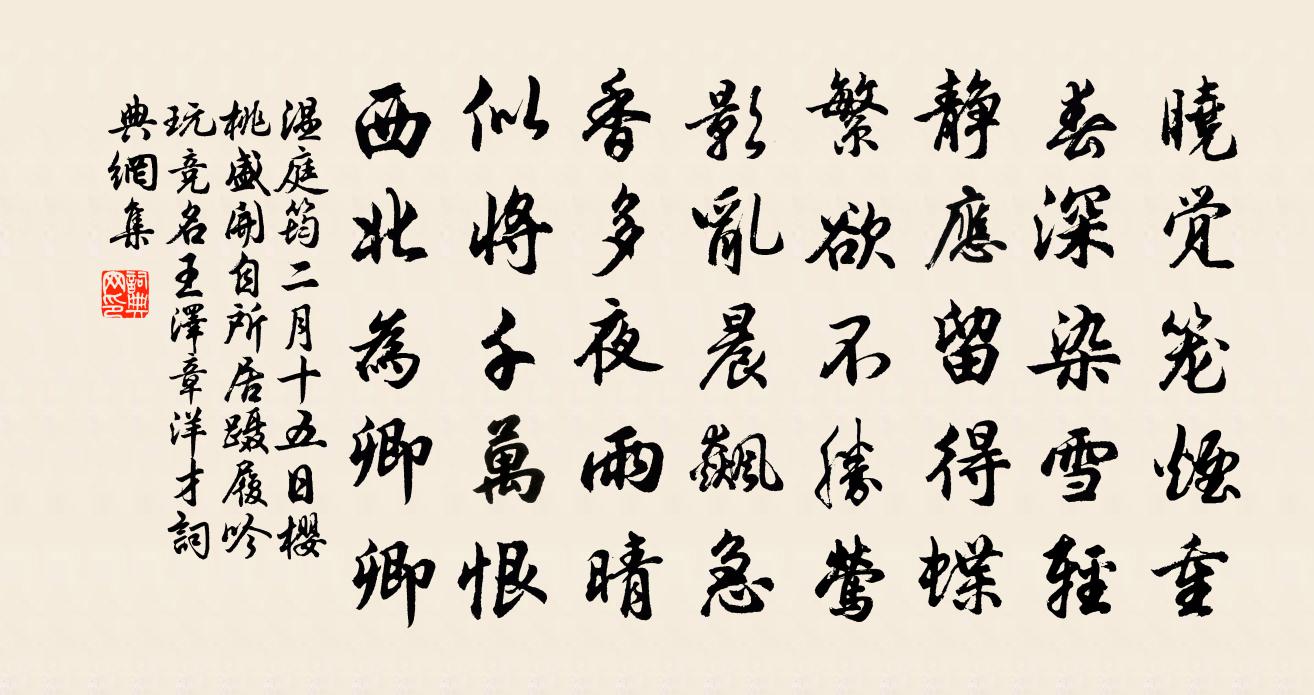 曉覚笼煙重
春深染雪輕
靜應留得蝶
繁欲不勝鶯
影亂晨飆急
香多夜雨晴
似將千萬恨
西北為卿卿
温庭筠二月十五日櫻
桃盛開自所居躡履吟
玩竞名王澤章洋才詞
典網集
詞典網印